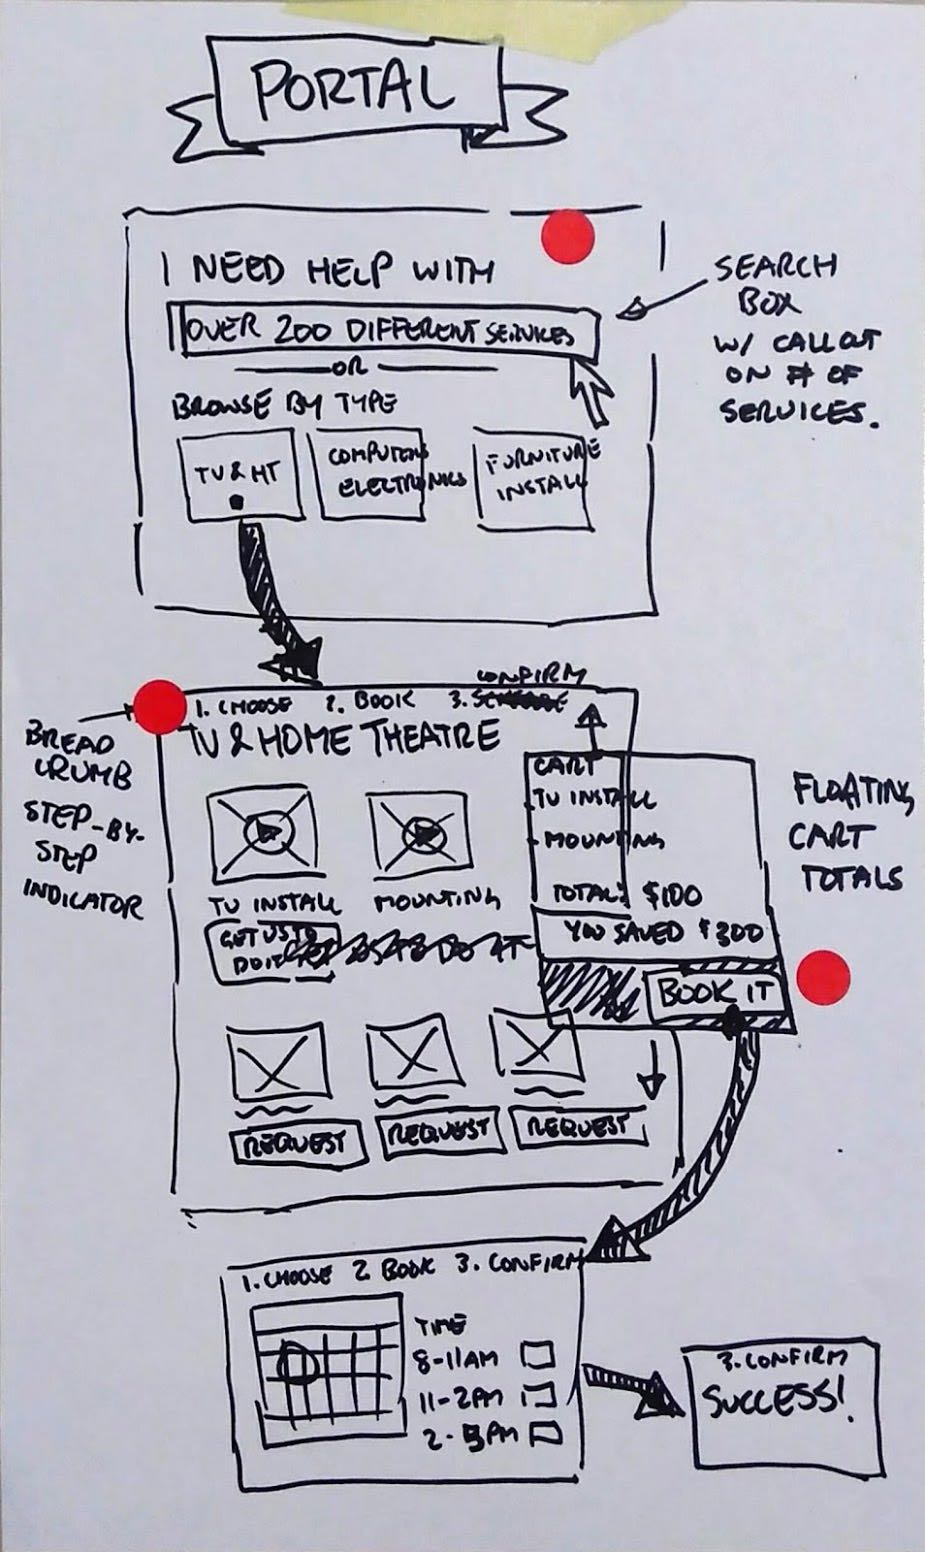 PORTAL
I NEED HELP WITH
OVER 200 DIFFERENT SERVICES
OR
BROWSE BY TYPE
TV & HT
COMPUTERS
ELECTRONICS
FURNITURE
INSTALL
SEARCH
BOX
W/ CALLOUT
ON # OF
SERVICES.
CONFIRM
1. CHOOSE 2. BOOK 3.
TV & HOME THEATRE
BREAD
CRUMB
STEP-BY-
STEP
INDICATOR
TV INSTALL
MOUNTING
GET US TO
DO IT
CART
TV INSTALL
MOUNTING
TOTAL: $100
YOU SAVED $300
BOOK IT
FLOATING
CART
TOTALS
REQUEST
REQUEST
REQUEST
1. CHOOSE 2 BOOK 3. CONFIRM
TIME
8-11AM
11-2PM
2-5PM
3. CONFIRM
SUCCESS!